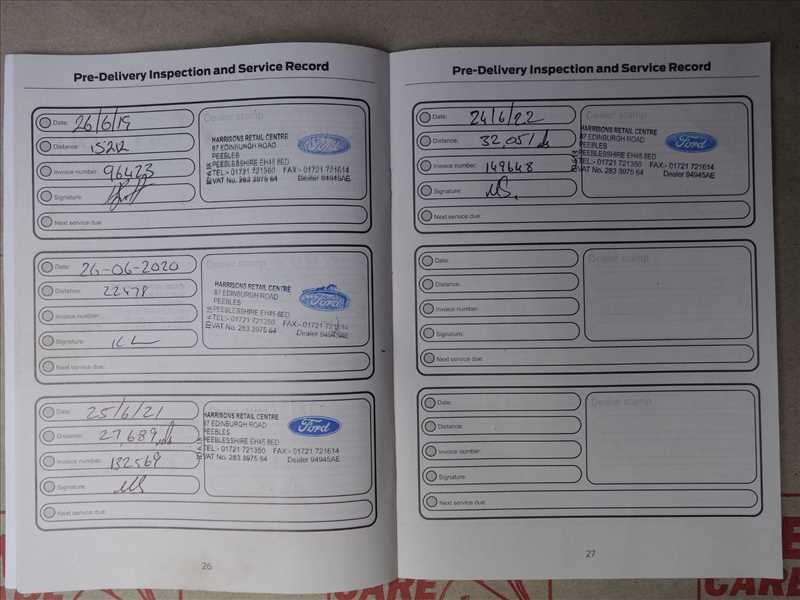 Pre-Delivery Inspection and Service Record
Date: 26/6/19
Distance: 15212
Invoice number: 96423
Signature:
Next service due:
Dealer stamp
HARRISONS RETAIL CENTRE
87 EDINBURGH ROAD
PEEBLES
PEEBLESSHIRE EH45 8ED
TEL:- 01721 721350 FAX:- 01721 721614
VAT No. 283 3975 64 Dealer 94945AE
Ford
Date: 26-06-2020
Distance: 22478
Invoice number:
Signature:
Next service due:
Dealer stamp
HARRISONS RETAIL CENTRE
87 EDINBURGH ROAD
PEEBLES
PEEBLESSHIRE EH45 8ED
TEL:- 01721 721350 FAX:- 01721 721614
VAT No. 283 3975 64 Dealer 94945AE
Ford
Date: 25/6/21
Distance: 27,689
Invoice number: 132569
Signature:
Next service due:
HARRISONS RETAIL CENTRE
87 EDINBURGH ROAD
PEEBLES
PEEBLESSHIRE EH45 8ED
TEL:- 01721 721350 FAX:- 01721 721614
VAT No. 283 3975 64 Dealer 94945AE
Ford
26
Pre-Delivery Inspection and Service Record
Date: 24/6/22
Distance: 32,051
Invoice number: 149648
Signature: MS.
Next service due:
Dealer stamp
HARRISONS RETAIL CENTRE
87 EDINBURGH ROAD
PEEBLES
PEEBLESSHIRE EH45 8ED
TEL:- 01721 721350 FAX:- 01721 721614
VAT No. 283 3975 64 Dealer 94945AE
Ford
Date:
Distance:
Invoice number:
Signature:
Next service due:
Dealer stamp
Date:
Distance:
Invoice number:
Signature:
Next service due:
Dealer stamp
27
CARE
CARE